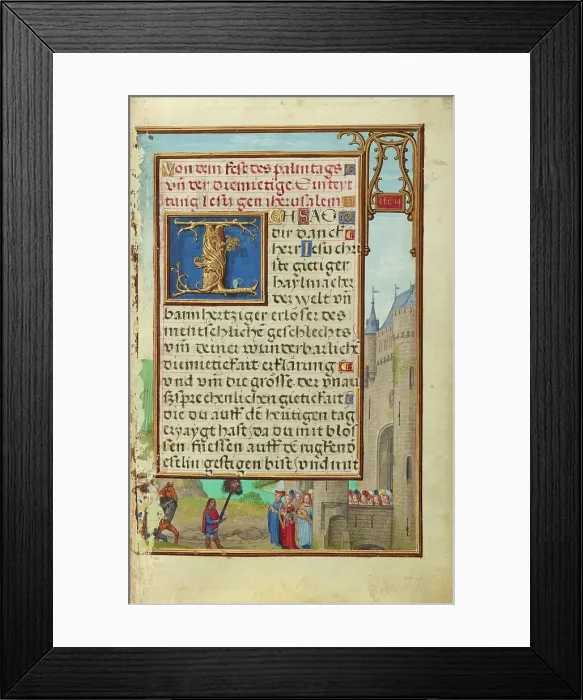 Von dem fest des palmtags
vñ der diemietige Einreyt
tung Iesu gen iherusalem
I CH SAG
dir danck
herr Iesu chri
ste gietiger
haylmacher
der welt vñ
barmhertziger erlöser des
mentschlichē geschlechts
vm̄ deiner wunderbarlichē
diemietikait erklärung
vnd vm̄ die grösse der vnau
ßsprechenlichen gietikait
die du auff dē heütigen tag
erzaygt hast da du mit blos
sen fuessen auff dē rugkend
eselin gestigen bist vnd mit